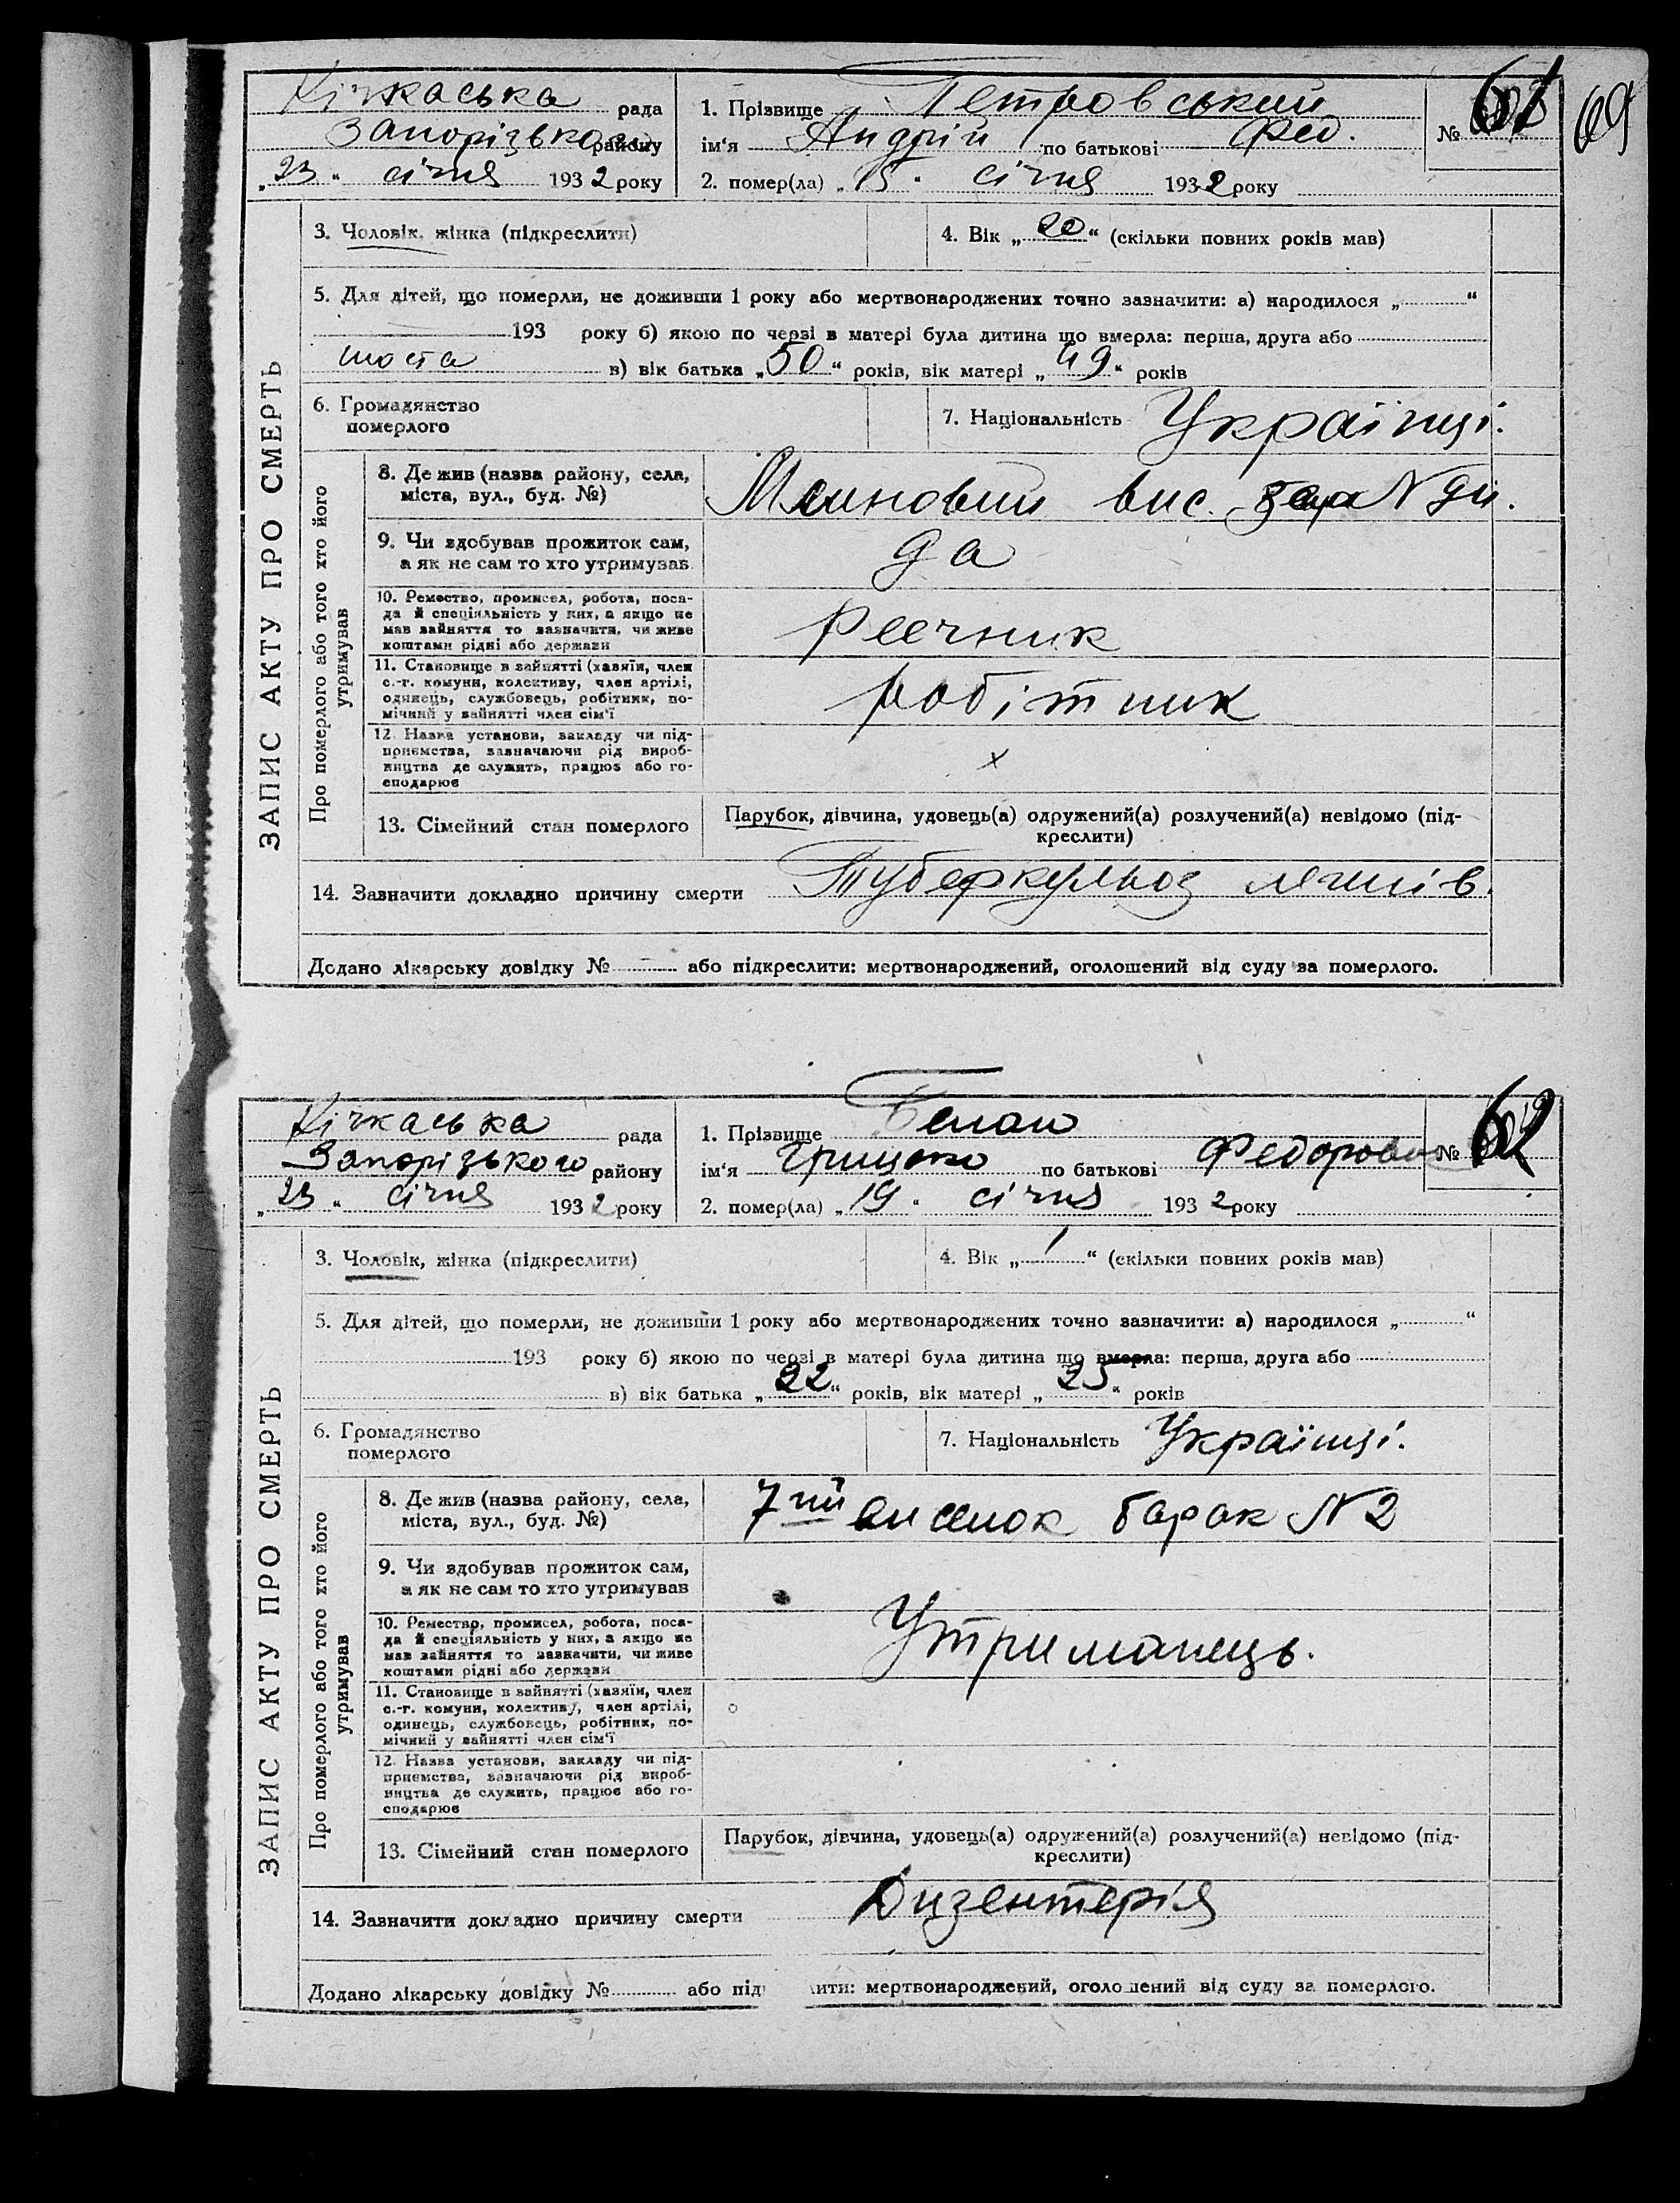 69
Кічкаська рада
Запорізького району
„23“ січня 1932 року
1. Прізвище Петровський
ім‘я Андрій по батькові Фед.
2. помер(ла) „15“ січня 1932 року
№ 61
ЗАПИС АКТУ ПРО СМЕРТЬ
3. Чоловік, жінка (підкреслити)
4. Вік „20“ (скільки повних років мав)
5. Для дітей, що померли, не доживши 1 року або мертвонароджених точно зазначити: а) народилося „ “
193 року б) якою по черзі в матері була дитина що вмерла: перша, друга або
шоста в) вік батька „50“ років, вік матері „49“ років
6. Громадянство
померлого
7. Національність Українці.
Про померлого або того хто його
утримував
8. Де жив (назва району, села,
міста, вул., буд. №)
вис.
9. Чи здобував прожиток сам,
а як не сам то хто утримував
да
10. Ремество, промисел, робота, поса-
да й спеціяльність у них, а якщо не
мав зайняття то зазначити, чи живе
коштами рідні або держави
Реечник
11. Становище в зайнятті (хазяїн, член
с.-г. комуни, колективу, член артілі,
одинець, службовець, робітник, по-
мічний у зайнятті член сім‘ї
робітник
12. Назва установи, закладу чи під-
приємства, зазначаючи рід вироб-
ництва де служить, працює або го-
сподарює
х
13. Сімейний стан померлого
Парубок, дівчина, удовець(а) одружений(а) розлучений(а) невідомо (під-
креслити)
14. Зазначити докладно причину смерти Туберкульоз легенів.
Додано лікарську довідку № або підкреслити: мертвонароджений, оголошений від суду за померлого.
Кічкаська рада
Запорізького району
„23“ січня 1932 року
1. Прізвище
ім‘я Грицько по батькові Федорович
2. помер(ла) „19“ січня 1932 року
№ 62
ЗАПИС АКТУ ПРО СМЕРТЬ
3. Чоловік, жінка (підкреслити)
4. Вік „1“ (скільки повних років мав)
5. Для дітей, що померли, не доживши 1 року або мертвонароджених точно зазначити: а) народилося „ “
193 року б) якою по черзі в матері була дитина що вмерла: перша, друга або
в) вік батька „22“ років, вік матері „25“ років
6. Громадянство
померлого
7. Національність Українці.
Про померлого або того хто його
утримував
8. Де жив (назва району, села,
міста, вул., буд. №)
7ий виселок барак N 2
9. Чи здобував прожиток сам,
а як не сам то хто утримував
10. Ремество, промисел, робота, поса-
да й спеціяльність у них, а якщо не
мав зайняття то зазначити, чи живе
коштами рідні або держави
Утриманець.
11. Становище в зайнятті (хазяїн, член
с.-г. комуни, колективу, член артілі,
одинець, службовець, робітник, по-
мічний у зайнятті член сім‘ї
12. Назва установи, закладу чи під-
приємства, зазначаючи рід вироб-
ництва де служить, працює або го-
сподарює
13. Сімейний стан померлого
Парубок, дівчина, удовець(а) одружений(а) розлучений(а) невідомо (під-
креслити)
14. Зазначити докладно причину смерти Дизентерія
Додано лікарську довідку № або під ити: мертвонароджений, оголошений від суду за померлого.